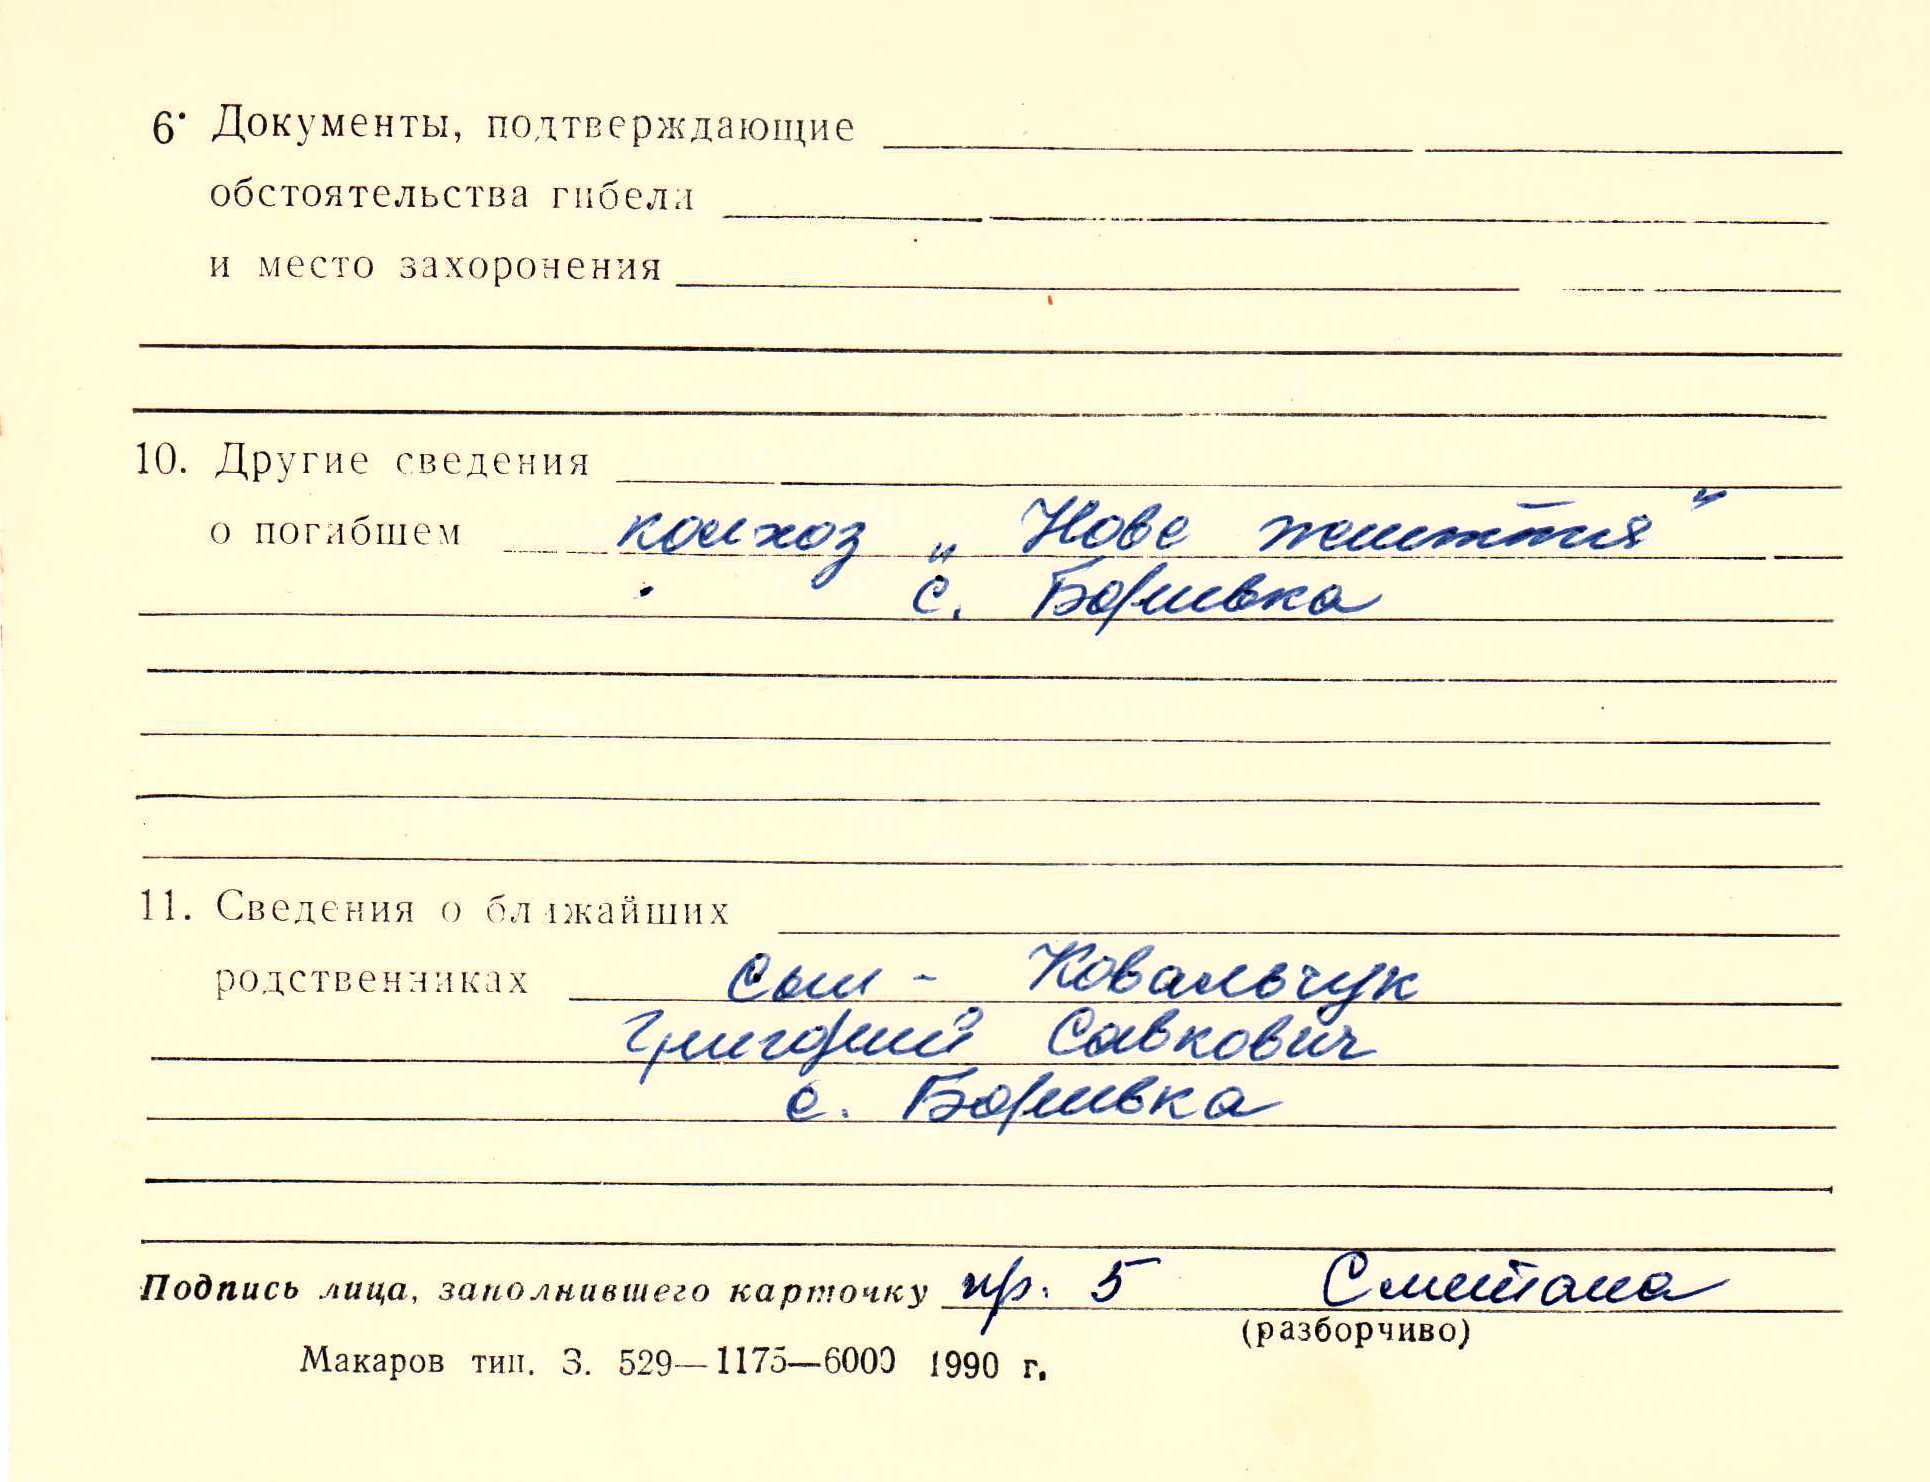 6. Документы, подтверждающие
обстоятельства гибели
и место захоронения
10. Другие сведения
о погибшем колхоз „Нове життя"
с. Боривка
11. Сведения о ближайших
родственниках Сын - Ковальчук
Григорий Савкович
с. Боривка
Подпись лица, заполнившего карточку пр. 5 Сметана
(разборчиво)
Макаров тип. З. 529—1175—6000 1990 г.